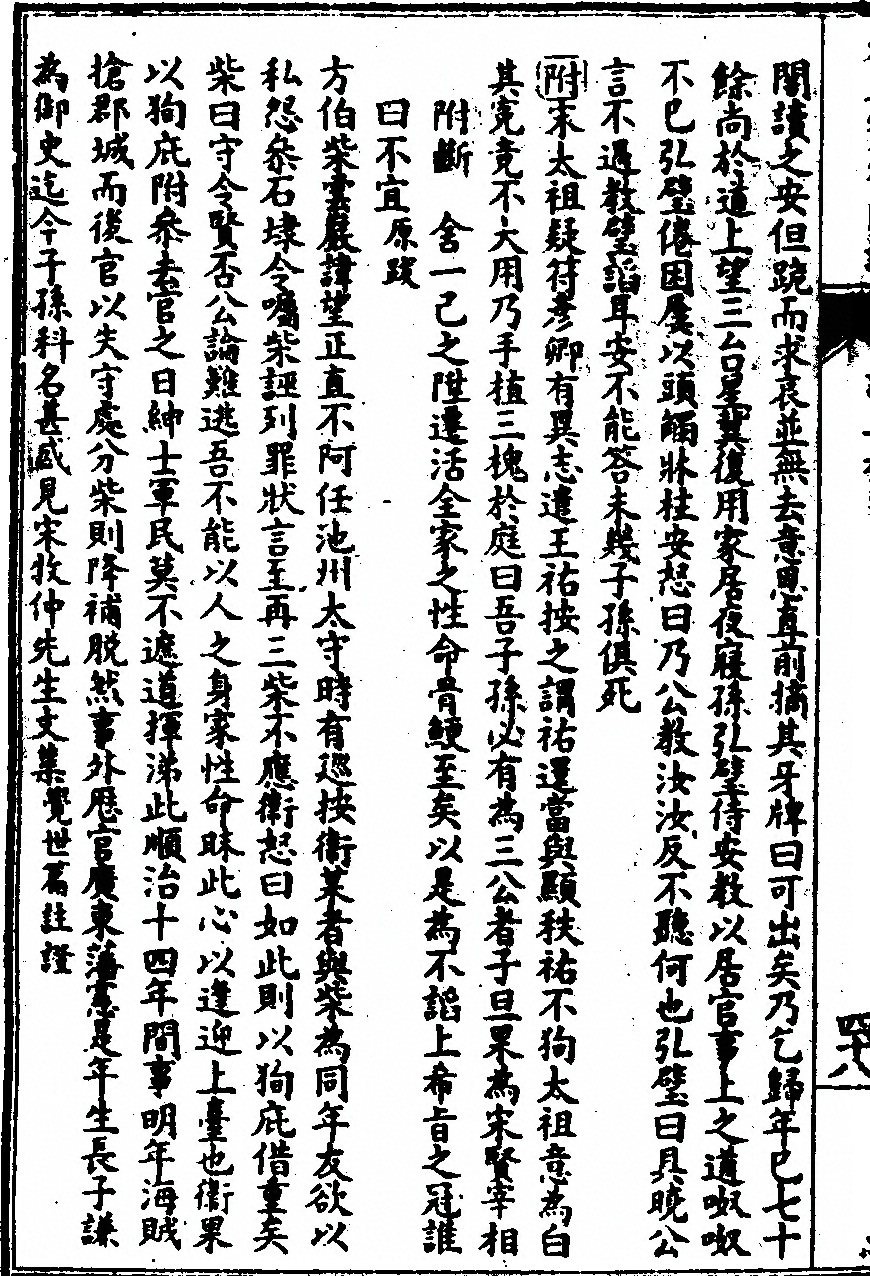 閣讀之安但跪而求哀並無去意恩直前摘其牙牌曰可出矣乃乞歸年已七十
餘尚於道上望三台星冀復用家居夜寢孫弘璧侍安教以居官事上之道呶呶
不已弘璧倦困屢以頭觸牀柱安怒曰乃公教汝汝反不聽何也弘璧曰具曉公
言不過教璧諂耳安不能答未幾子孫俱死
附宋太祖疑符彥卿有異志遣王祐按之謂祐還當與顯秩祐不狥太祖意為白
其寃竟不大用乃手植三槐於庭曰吾子孫必有為三公者子旦果為宋賢宰相
附斷 舍一己之陞遷活全家之性命骨鯁至矣以是為不諂上希旨之冠誰
曰不宜原跋
方伯柴雲巖諱望正直不阿任池州太守時有廵按衛某者與柴為同年友欲以
私怨叅石埭令囑柴誣列罪狀言至再三柴不應衛怒曰如此則以狥庇借重矣
柴曰守令賢否公論難逃吾不能以人之身家性命昧此心以逢迎上臺也衛果
以狥庇附叅去官之日紳士軍民莫不遮道揮涕此順治十四年間事明年海賊
搶郡城而後官以失守處分柴則降補脫然事外歷官廣東藩憲是年生長子謙
為御史迄今子孫科名甚盛見宋牧仲先生文集覺世篇註證
四十八